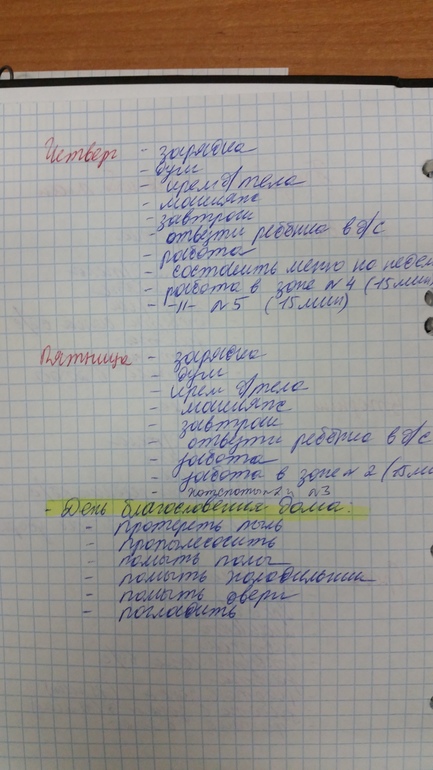 Четверг - зарядка
- душ
- крем д/тела
- макияж
- завтрак
- отвезти ребенка в д/с
- работа
- составить меню на недел
- работа в зоне №4 (15 мин)
- -//- №5 (15 мин)
Пятница - зарядка
- душ
- крем д/тела
- макияж
- завтрак
- отвезти ребенка в д/с
- работа
- работа в зоне №2 (15 м
- №3
- День благословения дома:
- протереть пыль
- пропылесосить
- помыть полы
- помыть холодильник
- помыть двери
- погладить